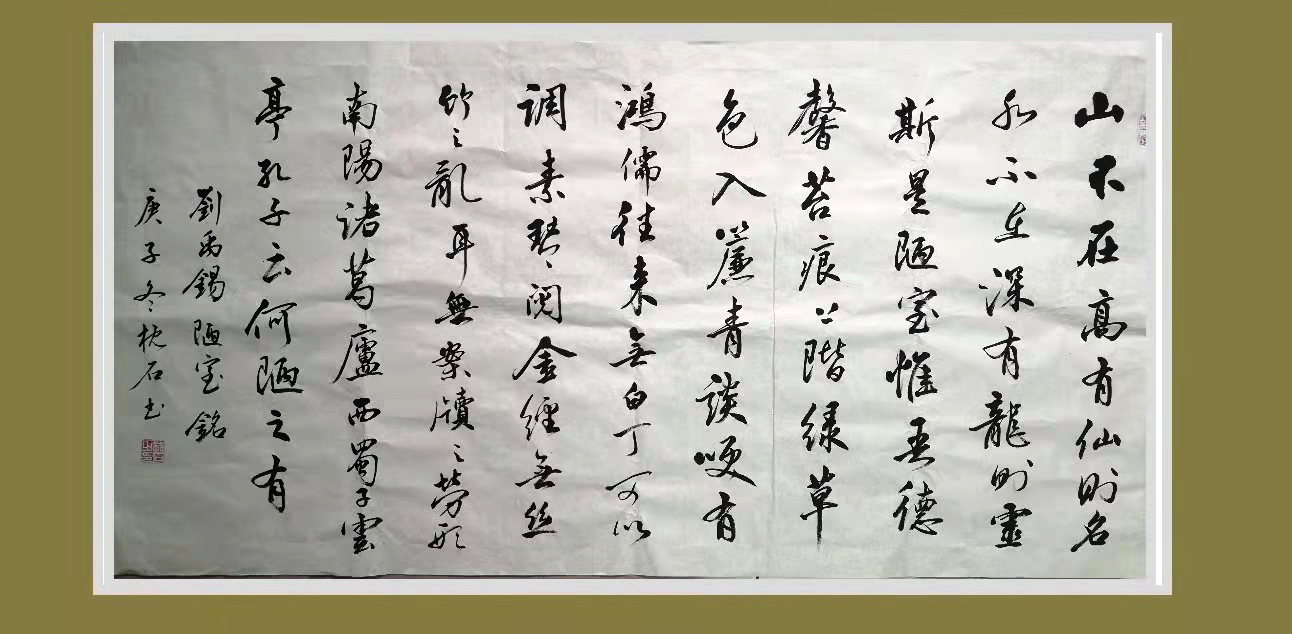 山不在高有仙則名
水不在深有龍則靈
斯是陋室惟吾德
馨苔痕上階绿草
色入簾青談咲有
鴻儒往来無白丁可以
调素琴阅金經無丝
竹之亂耳無案牘之勞形
南陽诸葛廬西蜀子雲
亭孔子云何陋之有
劉禹錫陋室銘
庚子冬枕石书